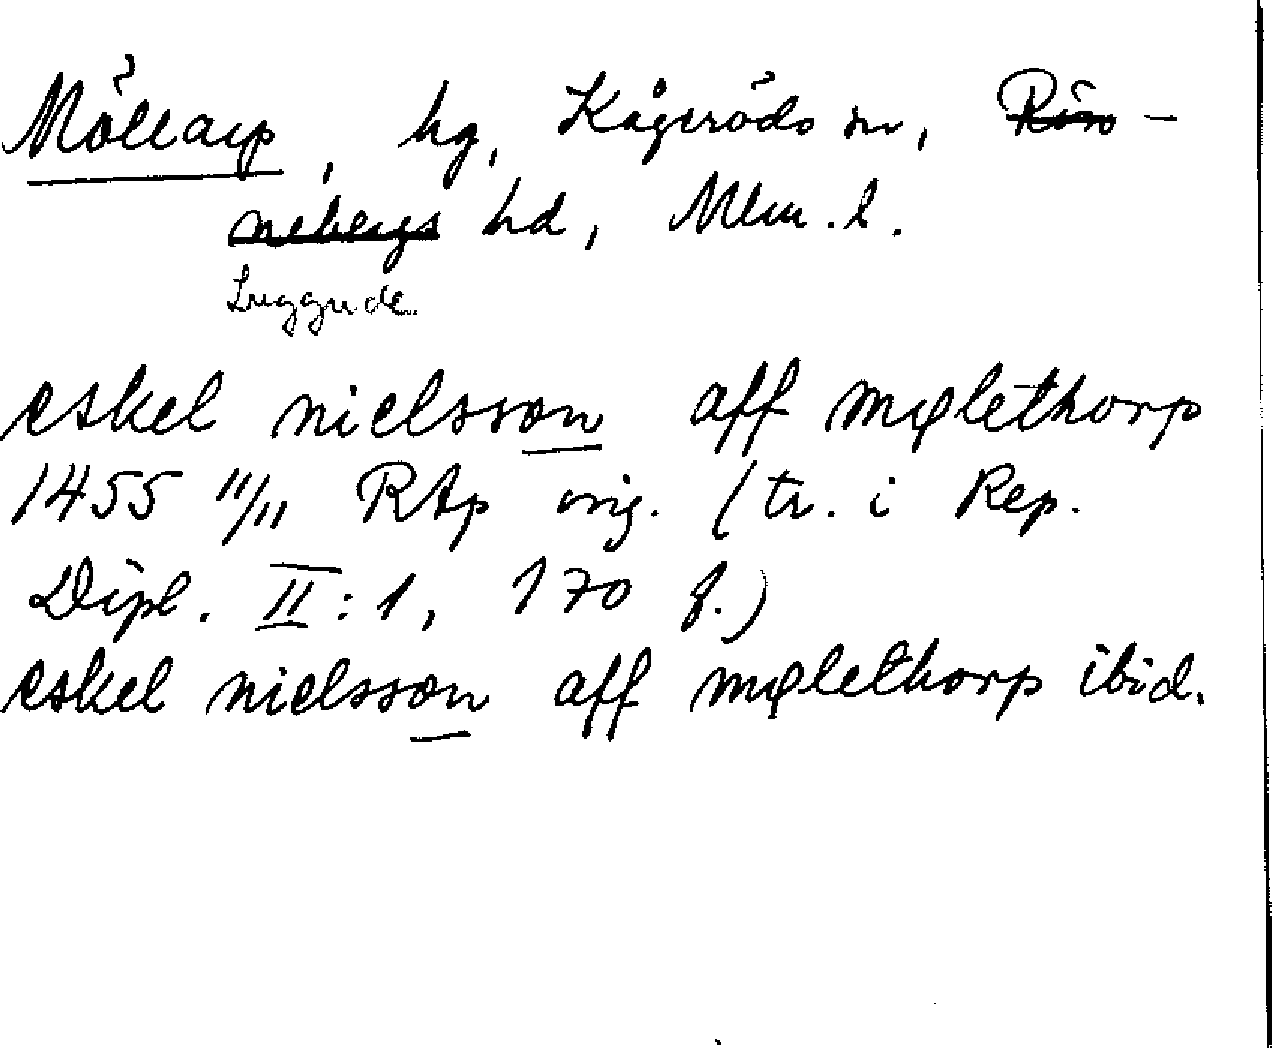 Möllarp, hg, Kågeröds sn, Rön-
nebergs hd, Mlm. l.
Luggude
eskel nielsson aff mølethorp
1455 11/11 RAp orig. (tr. i Rep.
Dipl. II:1, 170 f.)
eskel nielsson aff mølethorp ibid.